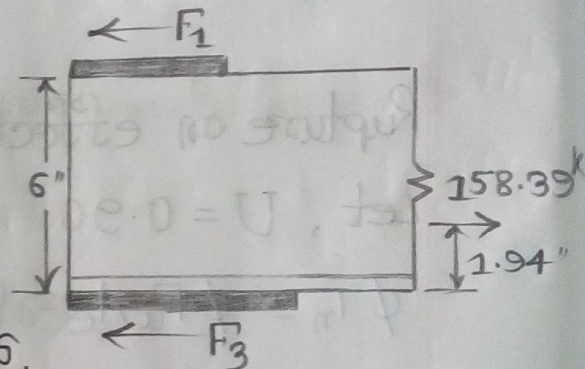 ← F₁
6"
158.39ᵏ
1.94"
← F₃